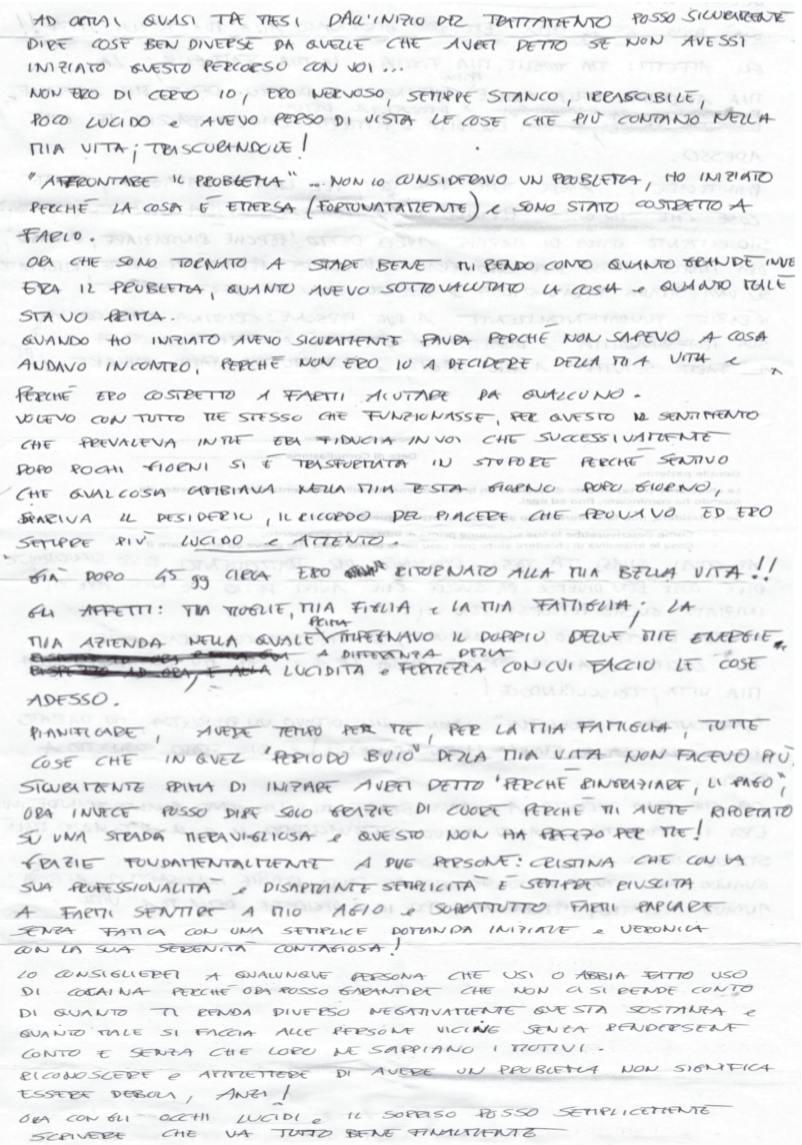 AD ORMAI QUASI TRE MESI DALL'INIZIO DEL TRATTAMENTO POSSO SICURAMENTE
DIRE COSE BEN DIVERSE DA QUELLE CHE AVREI DETTO SE NON AVESSI
INIZIATO QUESTO PERCORSO CON VOI...
NON ERO DI CERTO IO, ERO NERVOSO, SEMPRE STANCO, IRRASCIBILE,
POCO LUCIDO e AVEVO PERSO DI VISTA LE COSE CHE PIÙ CONTANO NELLA
MIA VITA; TRASCURANDOLE!
"AFFRONTARE IL PROBLEMA"... NON LO CONSIDERAVO UN PROBLEMA, HO INIZIATO
PERCHÉ LA COSA È EMERSA (FORTUNATAMENTE) e SONO STATO COSTRETTO A
FARLO.
ORA CHE SONO TORNATO A STARE BENE MI RENDO CONTO QUANTO GRANDE INVE
ERA IL PROBLEMA, QUANTO AVEVO SOTTOVALUTATO LA COSA e QUANTO MALE
STAVO PRIMA.
QUANDO HO INIZIATO AVEVO SICURAMENTE PAURA PERCHÉ NON SAPEVO A COSA
ANDAVO INCONTRO, PERCHÉ NON ERO IO A DECIDERE DELLA MIA VITA e
PERCHÉ ERO COSTRETTO A FARMI AIUTARE DA QUALCUNO.
VOLEVO CON TUTTO ME STESSO CHE FUNZIONASSE, PER QUESTO IL SENTIMENTO
CHE PREVALEVA IN ME ERA FIDUCIA IN VOI CHE SUCCESSIVAMENTE
DOPO POCHI GIORNI SI È TRASFORMATA IN STUPORE PERCHÉ SENTIVO
CHE QUALCOSA CAMBIAVA NELLA MIA TESTA GIORNO DOPO GIORNO,
SPARIVA IL DESIDERIO, IL RICORDO DEL PIACERE CHE PROVAVO ED ERO
SEMPRE PIÙ LUCIDO e ATTENTO.
GIÀ DOPO 45 gg CIRCA ERO RITORNATO ALLA MIA BELLA VITA!!
GLI AFFETTI: MIA MOGLIE, MIA FIGLIA e LA MIA FAMIGLIA; LA
MIA AZIENDA NELLA QUALE PRIMA IMPEGNAVO IL DOPPIO DELLE MIE ENERGIE
A DIFFERENZA DELLA
LUCIDITÀ e FERMEZZA CON CUI FACCIO LE COSE
ADESSO.
PIANIFICARE, AVERE TEMPO PER ME, PER LA MIA FAMIGLIA, TUTTE
COSE CHE IN QUEL "PERIODO BUIO" DELLA MIA VITA NON FACEVO PIÙ.
SICURAMENTE PRIMA DI INIZIARE AVREI DETTO "PERCHÉ RINGRAZIARE, LI PAGO",
ORA INVECE POSSO DIRE SOLO GRAZIE DI CUORE PERCHÉ MI AVETE RIPORTATO
SU UNA STRADA MERAVIGLIOSA e QUESTO NON HA PREZZO PER ME!
GRAZIE FONDAMENTALMENTE A DUE PERSONE: CRISTINA CHE CON LA
SUA PROFESSIONALITÀ e DISARMANTE SEMPLICITÀ È SEMPRE RIUSCITA
A FARMI SENTIRE A MIO AGIO e SOPRATTUTTO FARMI PARLARE
SENZA FATICA CON UNA SEMPLICE DOMANDA INIZIALE e VERONICA
CON LA SUA SERENITÀ CONTAGIOSA!
LO CONSIGLIEREI A QUALUNQUE PERSONA CHE USI O ABBIA FATTO USO
DI COCAINA PERCHÉ ORA POSSO GARANTIRE CHE NON CI SI RENDE CONTO
DI QUANTO TI RENDA DIVERSO NEGATIVAMENTE QUESTA SOSTANZA e
QUANTO MALE SI FACCIA ALLE PERSONE VICINE SENZA RENDERSENE
CONTO E SENZA CHE LORO NE SAPPIANO I MOTIVI.
RICONOSCERE e AMMETTERE DI AVERE UN PROBLEMA NON SIGNIFICA
ESSERE DEBOLI, ANZI!
ORA CON GLI OCCHI LUCIDI e IL SORRISO POSSO SEMPLICEMENTE
SCRIVERE CHE VA TUTTO BENE FINALMENTE